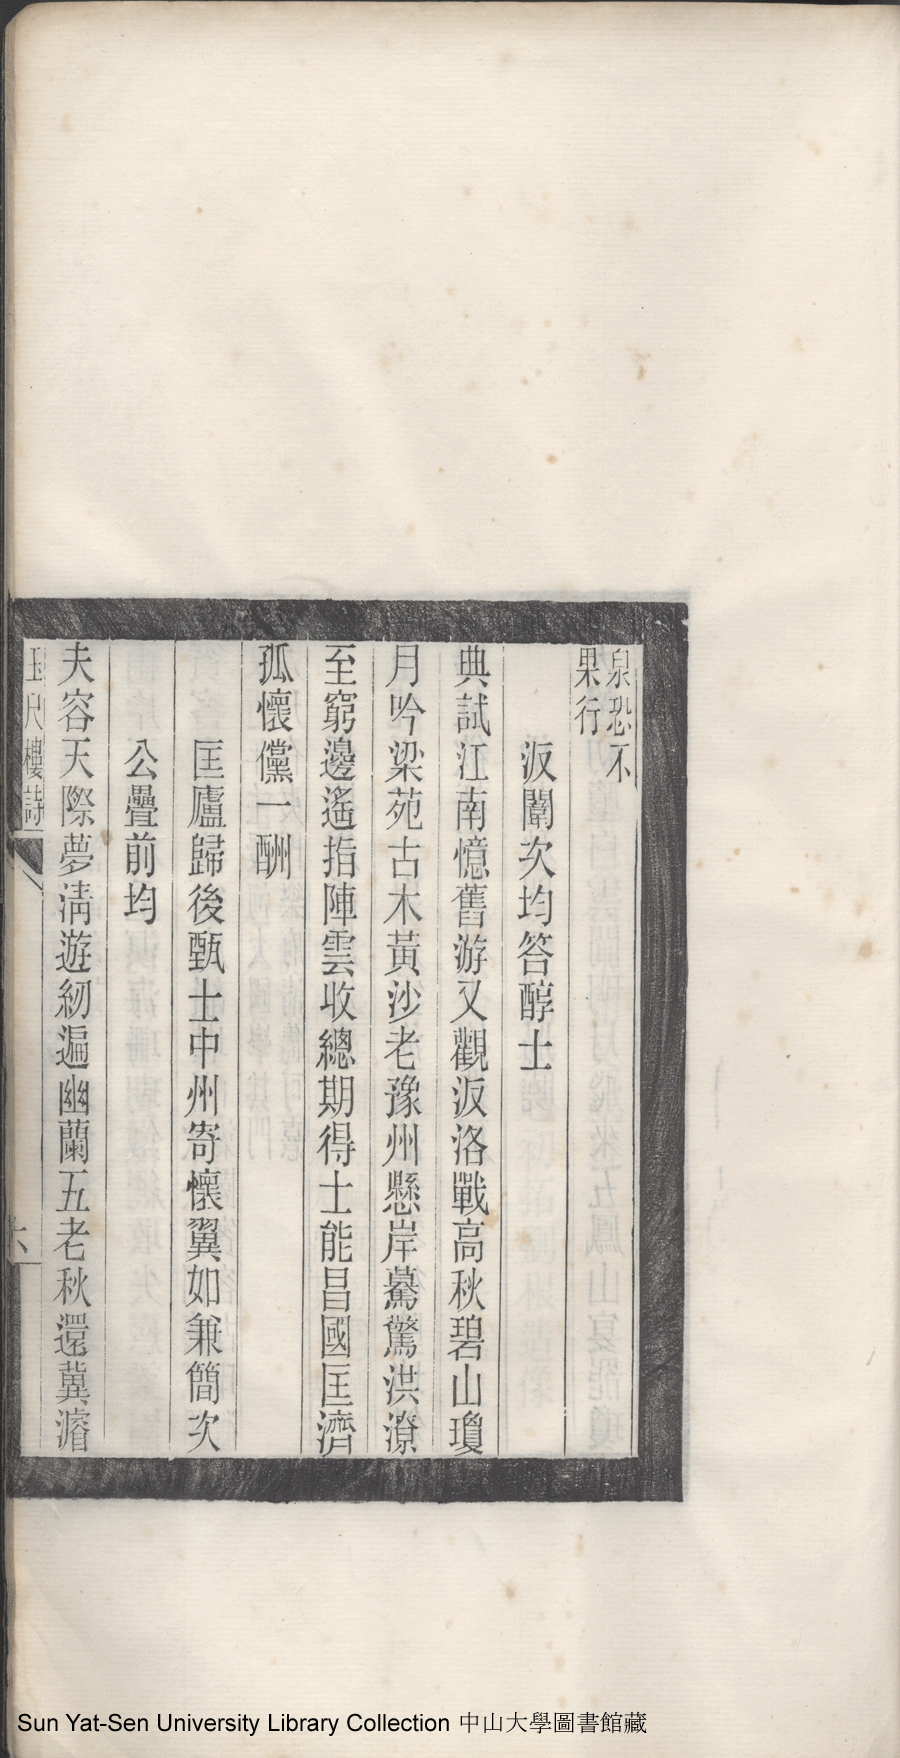 泉恐不
果行
汳闈次均答醇士
典試江南憶舊游又觀汳洛戰高秋碧山瓊
月吟梁苑古木黃沙老豫州懸岸驀驚洪潦
至窮邊遙指陣雲收總期得士能昌國匡濟
孤懷儻一酬
匡廬歸後甄士中州寄懷翼如兼簡次
公疊前均
夫容天際夢清遊紉遍幽蘭五老秋還冀濬
玉尺樓詩
六
Sun Yat-Sen University Library Collection 中山大學圖書館藏